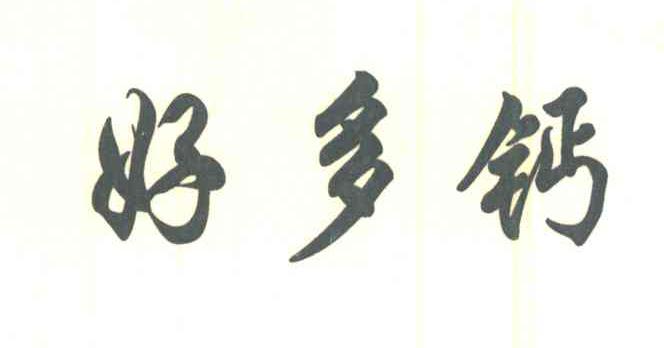 好多钙